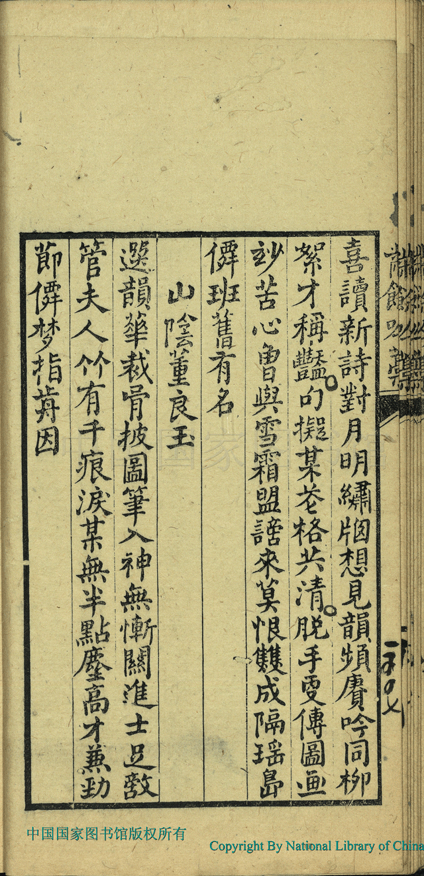 喜讀新詩對月明繡牕想見韻頻賡吟同柳
絮才稱豔句擬某花格共清脱手更傳圖画
妙苦心曾與雪霜盟謗來莫恨雙成隔瑤島
僊班舊有名
山陰董良玉
選韻華裁骨披圖筆入神無慚關進士足敵
管夫人竹有千痕淚某無半點塵高才兼勁
節僊梦指前因
中国国家图书馆版权所有
Copyright By National Library of China